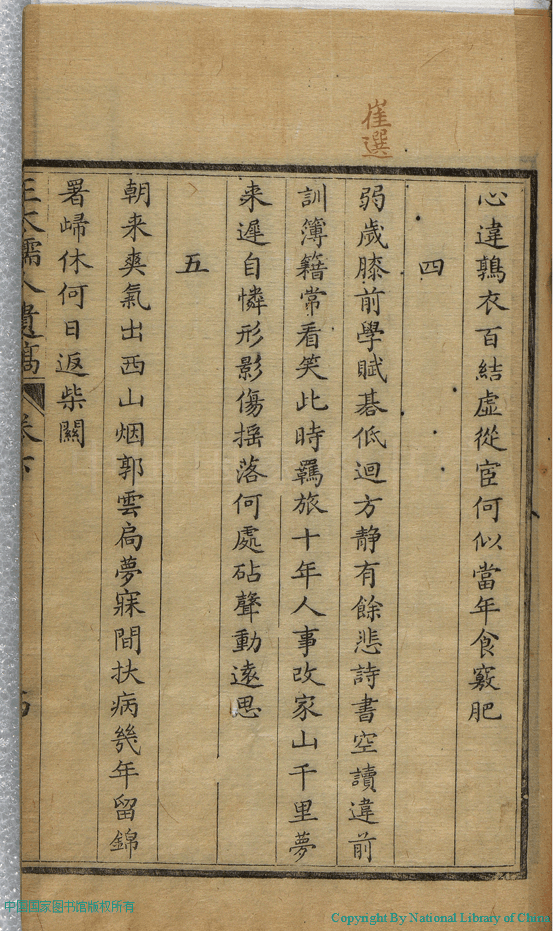 崔選
心違鶉衣百結虛從宦何似當年食薮肥
四
弱歲膝前學賦碁低迴方靜有餘悲詩書空讀違前
訓簿籍常看笑此時羈旅十年人事改家山千里夢
来遲自憐形影傷搖落何處砧聲動遠思
五
朝来爽氣出西山烟郭雲扃夢寐間扶病幾年留錦
署歸休何日返柴關
孺人遺稿
卷下
中国国家图书馆版权所有
Copyright By National Library of China